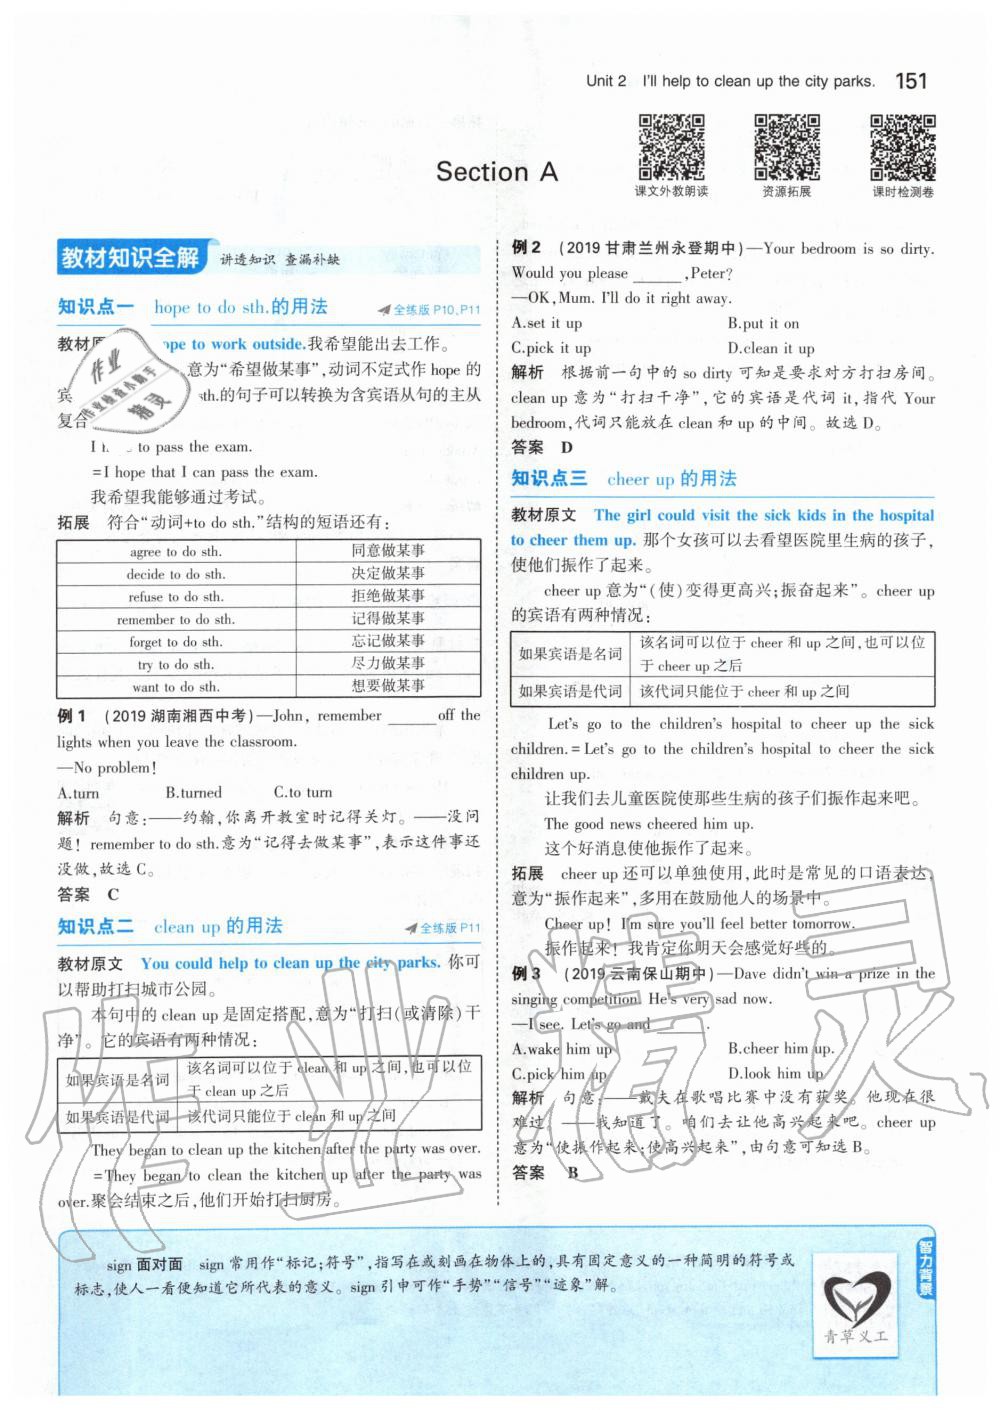 Unit 2 I'll help to clean up the city parks. 151
Section A
课文外教朗读
资源拓展
课时检测卷
教材知识全解 讲透知识 查漏补缺
知识点一 hope to do sth.的用法 全练版 P10、P11
教材原 ope to work outside.我希望能出去工作。
,意为“希望做某事”,动词不定式作 hope 的
宾 sth.的句子可以转换为含宾语从句的主从
复合
I h to pass the exam.
=I hope that I can pass the exam.
我希望我能够通过考试。
拓展 符合“动词+to do sth.”结构的短语还有:
agree to do sth. 同意做某事
decide to do sth. 决定做某事
refuse to do sth. 拒绝做某事
remember to do sth. 记得做某事
forget to do sth. 忘记做某事
try to do sth. 尽力做某事
want to do sth. 想要做某事
例 1 (2019 湖南湘西中考)—John, remember ______off the
lights when you leave the classroom.
—No problem!
A.turn B.turned C.to turn
解析 句意:——约翰,你离开教室时记得关灯。——没问
题! remember to do sth.意为“记得去做某事”,表示这件事还
没做,故选 C。
答案 C
知识点二 clean up 的用法 全练版 P11
教材原文 You could help to clean up the city parks. 你可
以帮助打扫城市公园。
本句中的 clean up 是固定搭配,意为“打扫(或清除)干
净”。它的宾语有两种情况:
如果宾语是名词 该名词可以位于 clean 和 up 之间,也可以位
于 clean up 之后
如果宾语是代词 该代词只能位于 clean 和 up 之间
They began to clean up the kitchen after the party was over.
=They began to clean the kitchen up after the party was
over.聚会结束之后,他们开始打扫厨房。
例 2 (2019 甘肃兰州永登期中)—Your bedroom is so dirty.
Would you please ______,Peter?
—OK,Mum. I'll do it right away.
A.set it up B.put it on
C.pick it up D.clean it up
解析 根据前一句中的 so dirty 可知是要求对方打扫房间。
clean up 意为“打扫干净”,它的宾语是代词 it,指代 Your
bedroom,代词只能放在 clean 和 up 的中间。故选 D。
答案 D
知识点三 cheer up 的用法
教材原文 The girl could visit the sick kids in the hospital
to cheer them up. 那个女孩可以去看望医院里生病的孩子,
使他们振作了起来。
cheer up 意为“(使)变得更高兴;振奋起来”。cheer up
的宾语有两种情况:
如果宾语是名词 该名词可以位于 cheer 和 up 之间,也可以位
于 cheer up 之后
如果宾语是代词 该代词只能位于 cheer 和 up 之间
Let's go to the children's hospital to cheer up the sick
children. = Let's go to the children's hospital to cheer the sick
children up.
让我们去儿童医院使那些生病的孩子们振作起来吧。
The good news cheered him up.
这个好消息使他振作了起来。
拓展 cheer up 还可以单独使用,此时是常见的口语表达,
意为“振作起来”,多用在鼓励他人的场景中。
Cheer up! I'm sure you'll feel better tomorrow.
振作起来!我肯定你明天会感觉好些的。
例 3 (2019 云南保山期中)—Dave didn't win a prize in the
singing competition. He's very sad now.
—I see. Let's go and ______.
A.wake him up B.cheer him up.
C.pick him up D.look him up
解析 句意:——戴夫在歌唱比赛中没有获奖。他现在很
难过。——我知道了。咱们去让他高兴起来吧。cheer up
意为“使振作起来;使高兴起来”,由句意可知选 B。
答案 B
sign 面对面 sign 常用作“标记;符号”,指写在或刻画在物体上的,具有固定意义的一种简明的符号或
标志,使人一看便知道它所代表的意义。sign 引申可作“手势”“信号”“迹象”解。
智力背景
青草义工
作业
作业检查小助手
精灵
作业精灵